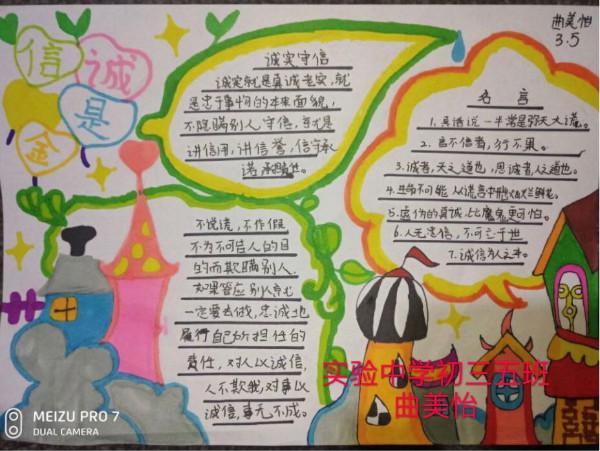 曲美怡
3.5
诚
信
是
金
诚实守信
诚实就是真诚老实,就
是忠于事物的本来面貌,
不隐瞒别人守信,
讲信用,讲信誉,信守承
诺
名言
1.真话说一半常是弥天大谎。
2.言不信者,行不果。
3.诚者,天之道也,思诚者,人之道也。
4.生命不可能从谎言中开出灿烂鲜花。
5.虚伪的真诚比魔鬼更可怕。
6.人无忠信,不可立于世
7.诚信为人之本。
不说谎,不作假
不为不可告人的目
的而欺瞒别人.
如果答应别人就
一定要去做,忠诚地
履行自己所担任的
责任,对人以诚信,
人不欺我,对事以
诚信,事无不成。
实验中学初三五班
曲美怡
MEIZU PRO 7
DUAL CAMERA